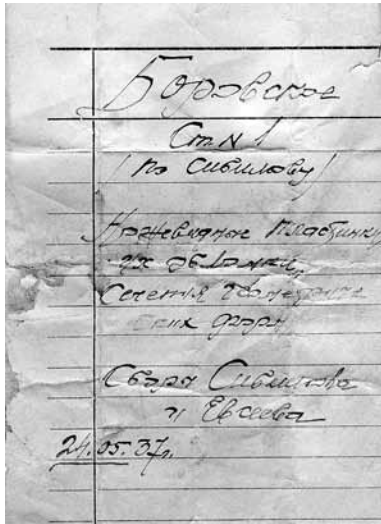 Боровское
Ст N 1
(по Сибилёву)
Ножевидные пластинки
их обломки,
Сечения геометриче
ских форм
Сборы Сибилёва
и Евсеева
24.05.37г.